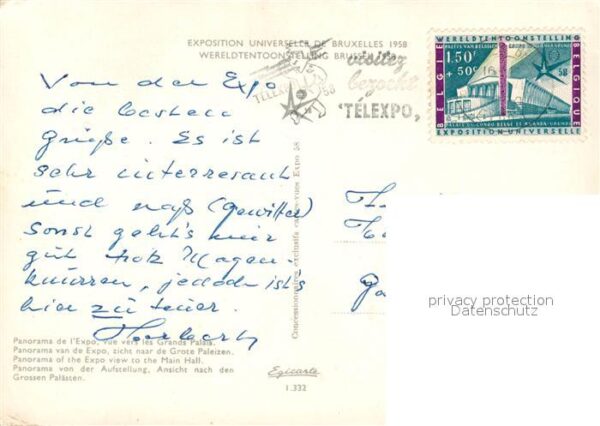 EXPOSITION UNIVERSELLE DE BRUXELLES 1958
WERELDTENTOONSTELLING BRUSSEL 1958
Von der Expo
die besten
Grüße. Es ist
sehr interresant
und naß (Gewitter)
Sonst geht's mir
gut trotz Magen-
knurren, jedoch ist's
hier zu teuer.
Herbert
Panorama de l'Expo, vue vers les Grands Palais.
Panorama van de Expo, zicht naar de Grote Paleizen.
Panorama of the Expo view to the Main Hall.
Panorama von der Aufstellung, Ansicht nach den
Grossen Palästen.
Concessionnaires exclusifs cartes-vues Expo 58
Egicarte
1.332
visitez
bezoekt
TÉLEXPO,
TÉLEXPO 58
WERELDTENTOONSTELLING
1.50F
+ 50c
58
BELGIE
BELGIQUE
PALAIS DU CONGO BELGE ET RUANDA-URUNDI
EXPOSITION UNIVERSELLE
privacy protection
Datenschutz